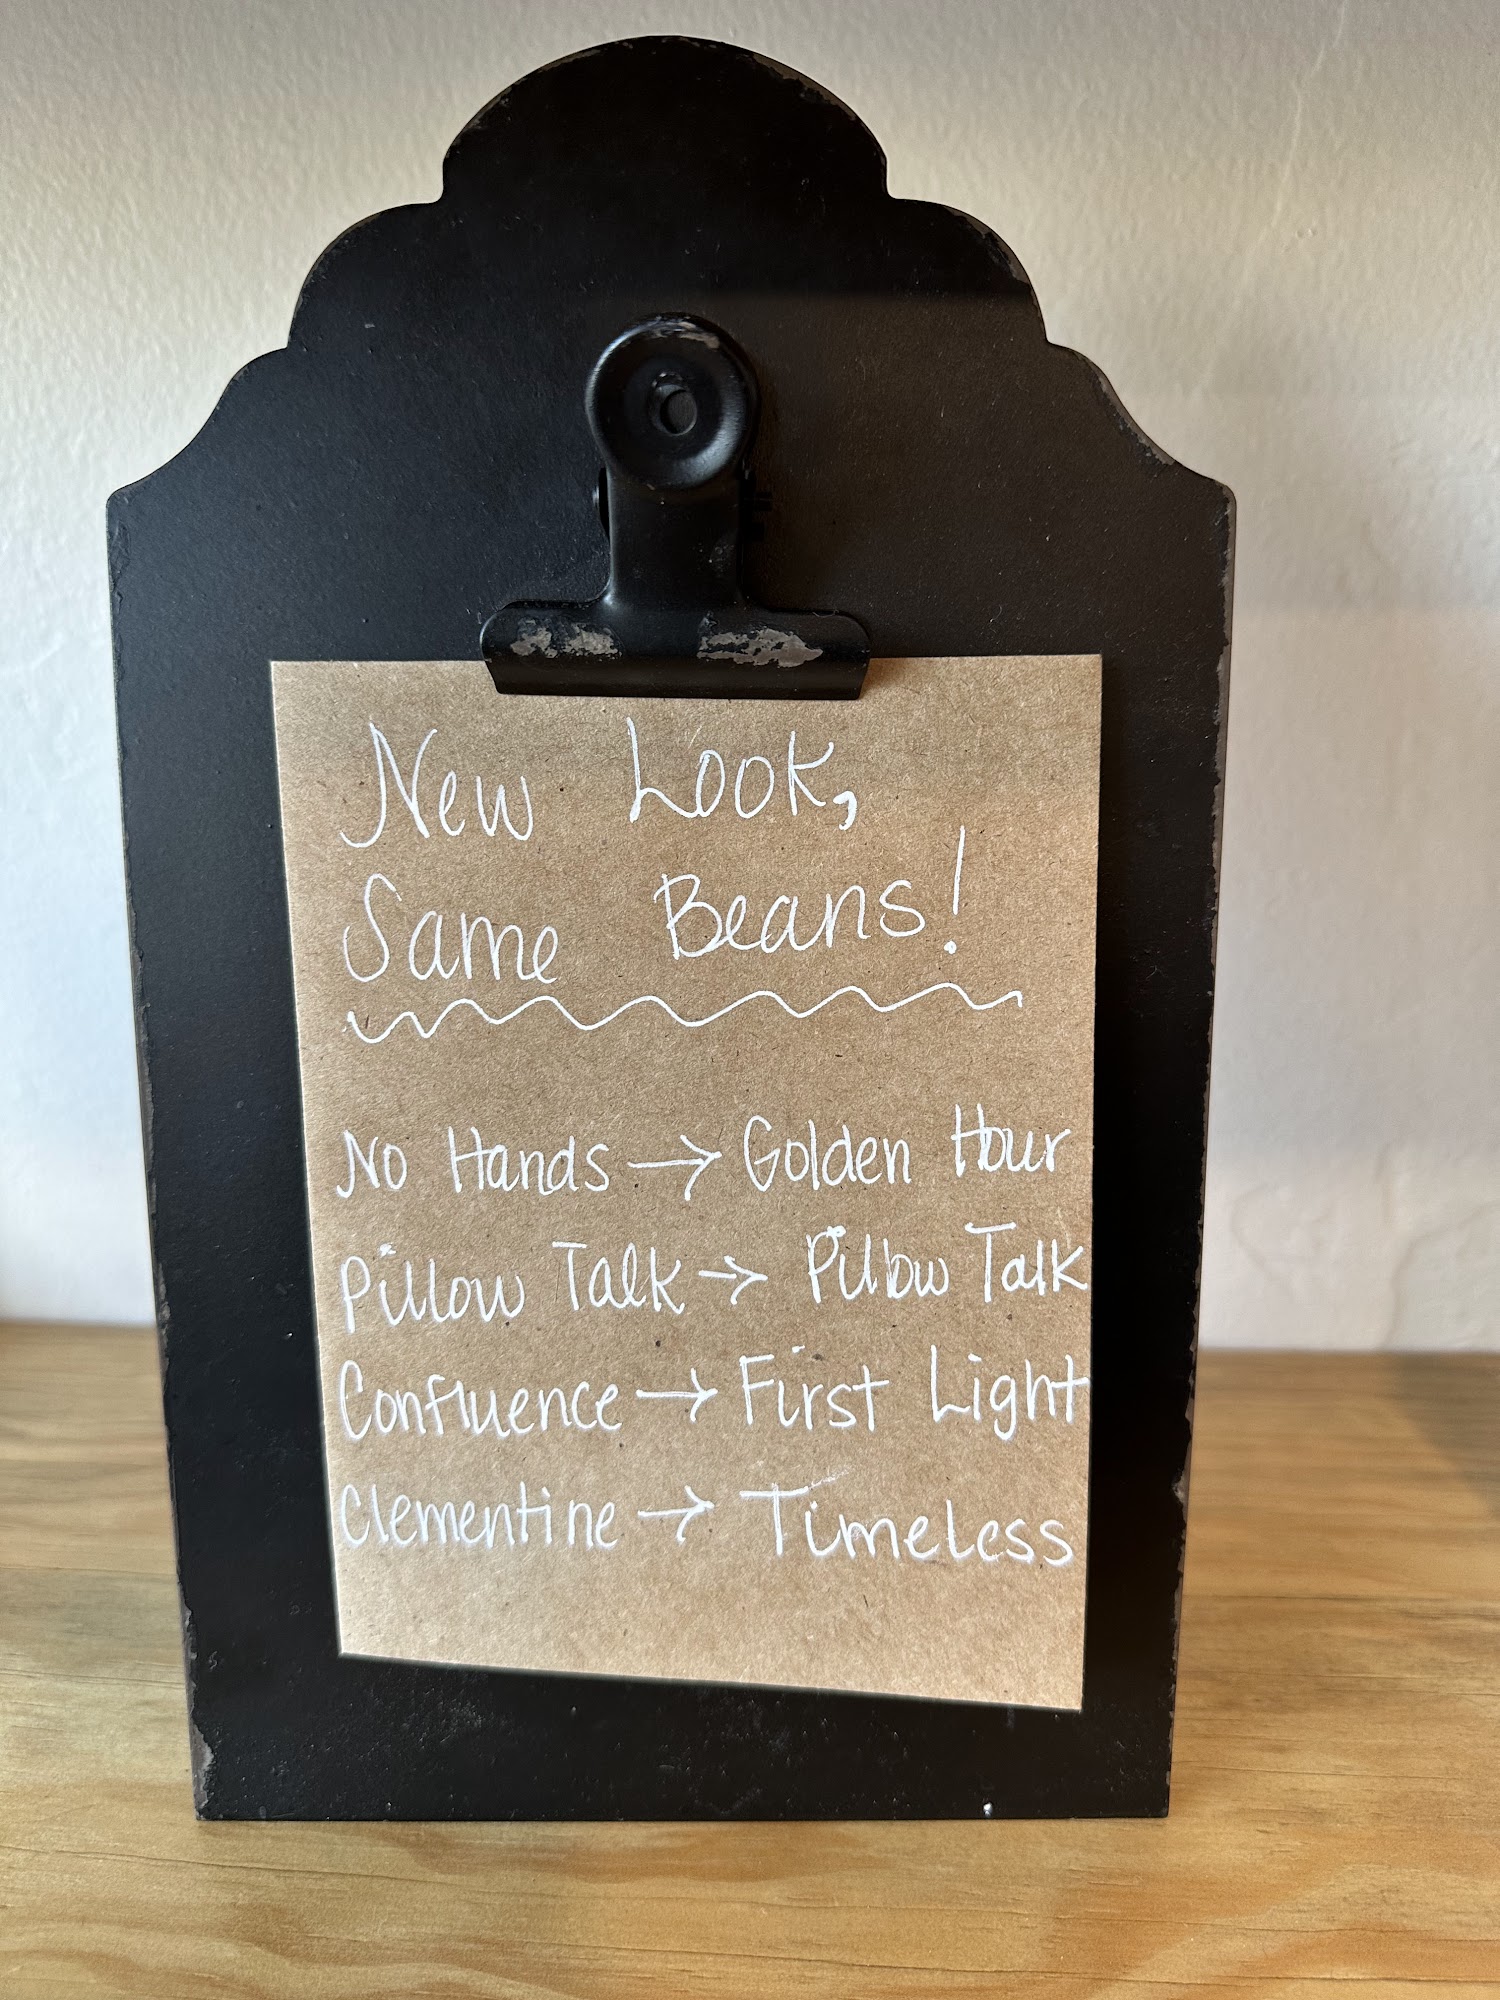 New Look,
Same Beans!
No Hands → Golden Hour
Pillow Talk → Pillow Talk
Confluence → First Light
Clementine → Timeless